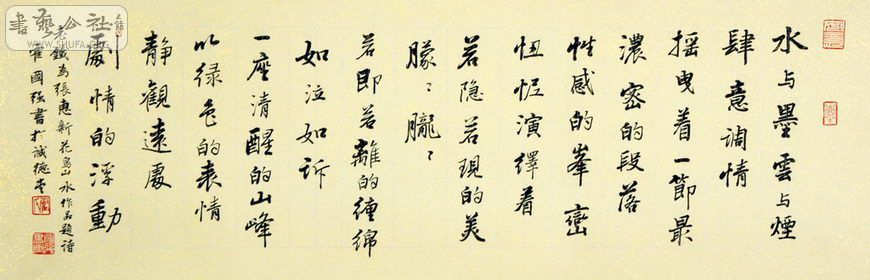 水与墨雲与煙
肆意調情
摇曳着一節最
濃密的段落
性感的峯巒
忸怩演繹着
若隐若現的美
朦〻朧〻
若即若離的纏綿
如泣如訴
一座清醒的山峰
以緑色的表情
静觀遠處
別處情的浮動
老鐵為張惠新花鳥山水作品題詩
霍國強書於誠德堂
書藝公社
WWW.SHUFA.ORG